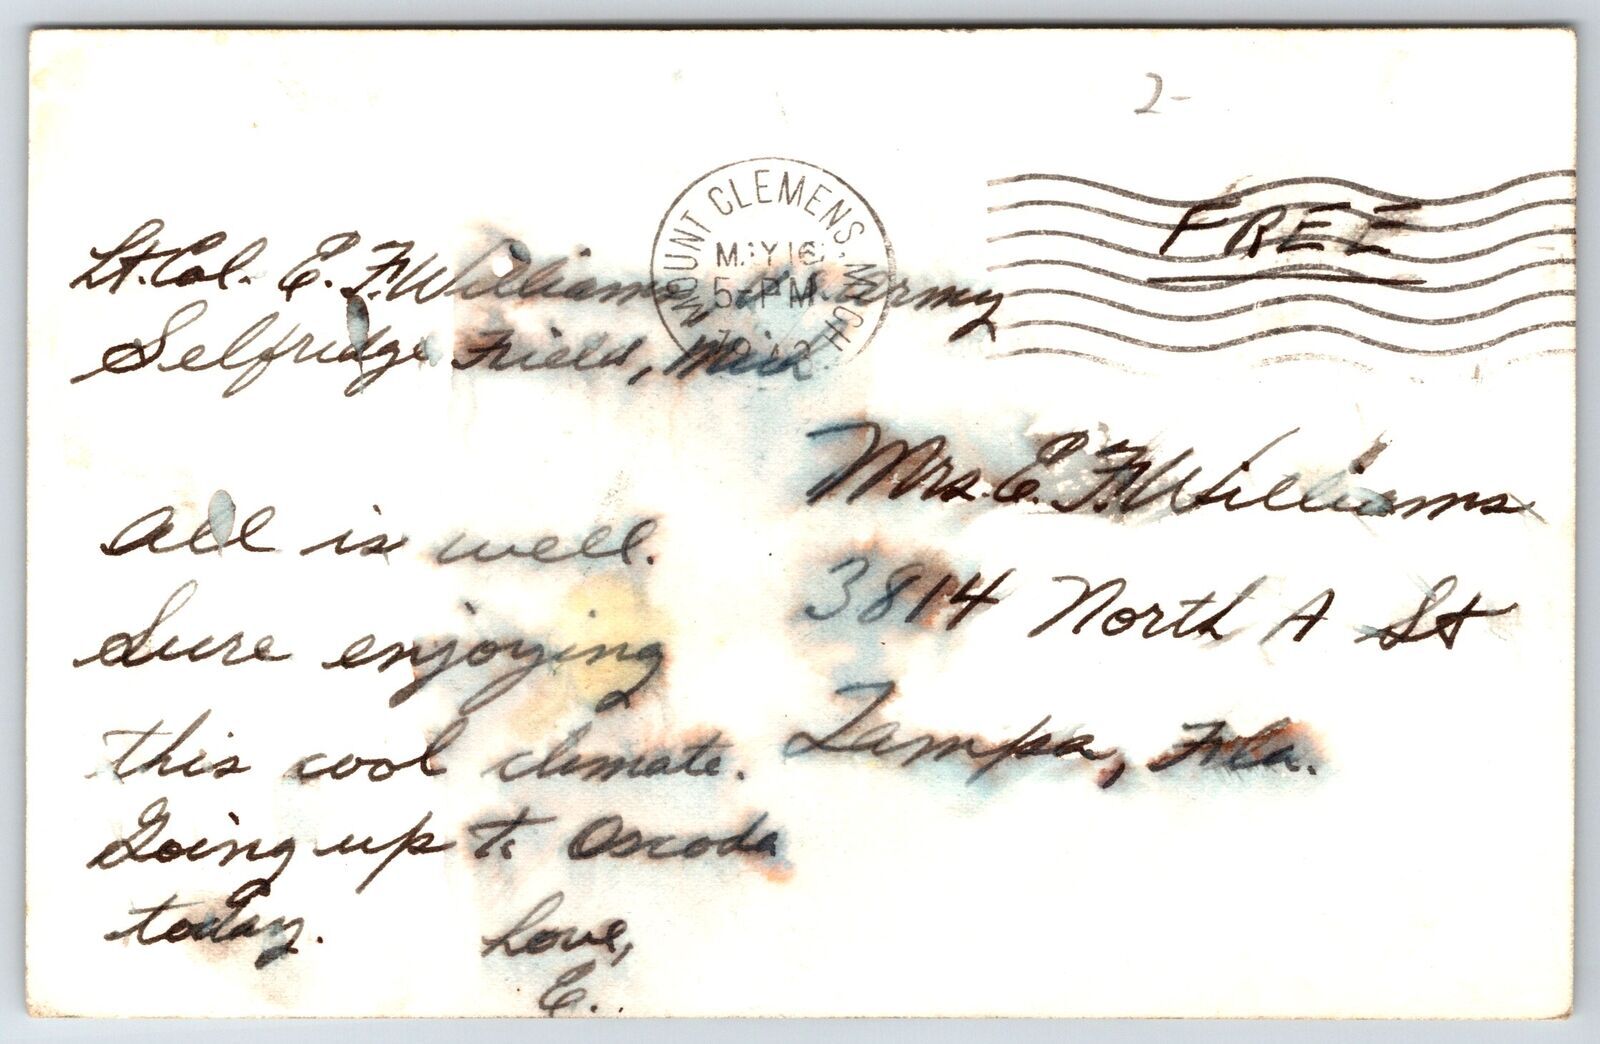 2-
MOUNT CLEMENS, MICH
MAY 16
5-PM
FREE
Lt. Col. E. F. Williams Army
Selfridge Field, Mich
Mrs. E. F. Williams
3814 North A St
Tampa, Fla.
All is well.
Sure enjoying
this cool climate.
Going up to Oscoda
today.
Love,
E.